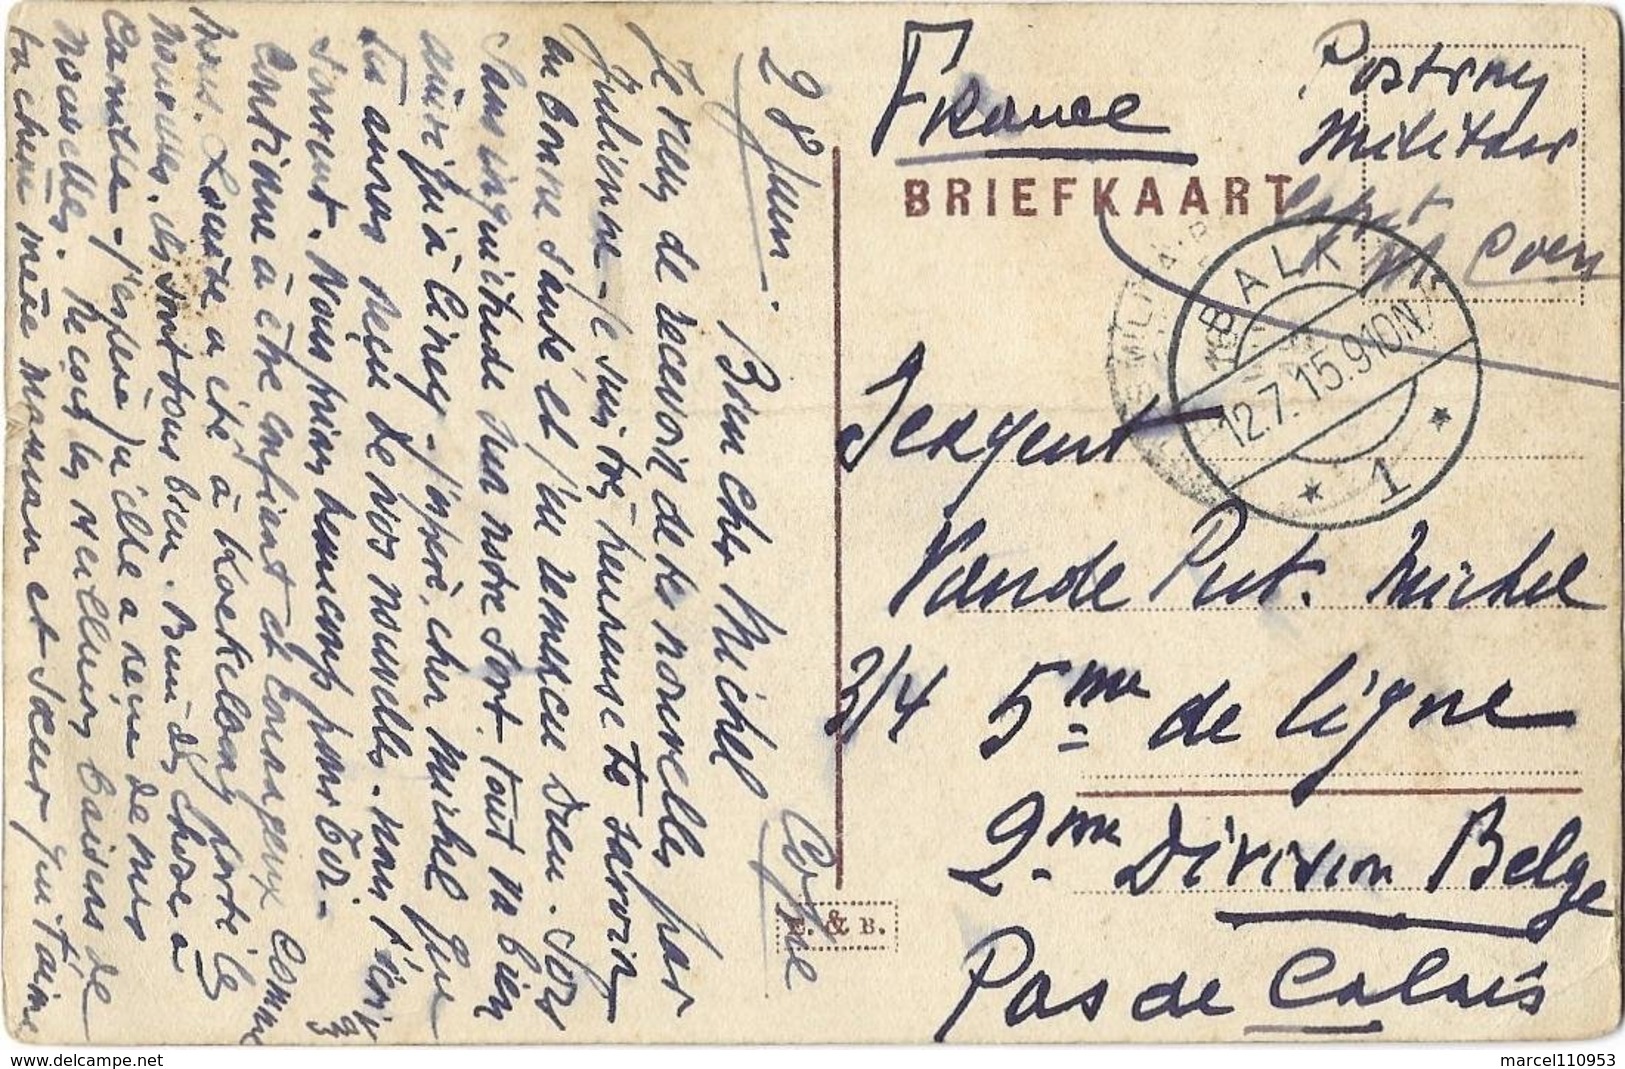 28 Juin.
Bien cher Michel
Je viens de recevoir de tes nouvelles par
Julienne - je suis très heureuse te savoir
en bonne santé et j'en remercie Dieu. Sois
sans inquiétude sur notre sort. tout va bien
ainsi qu'à Ciney - j'espère, cher Michel que
tu auras reçu de nos nouvelles. nous t'écrivons
souvent. Nous prions beaucoup pour toi -
Continue à être confiant et courageux comme
nous. Louise a été à Koekelberg porté les
nouvelles. ils sont tous bien. Bien des choses à
Camille - j'espère qu'elle a reçu de mes
nouvelles. Reçois les meilleurs baisers de
ta chère mère maman et sœur qui t'aime
France
Militair
BRIEFKAART
Coens
BALK
12.7.15.9-10N
1
Sergent
Vande Put. Michel
3/4 5me de ligne
2me Division Belge
Pas de Calais
E. & B.
marcel110953